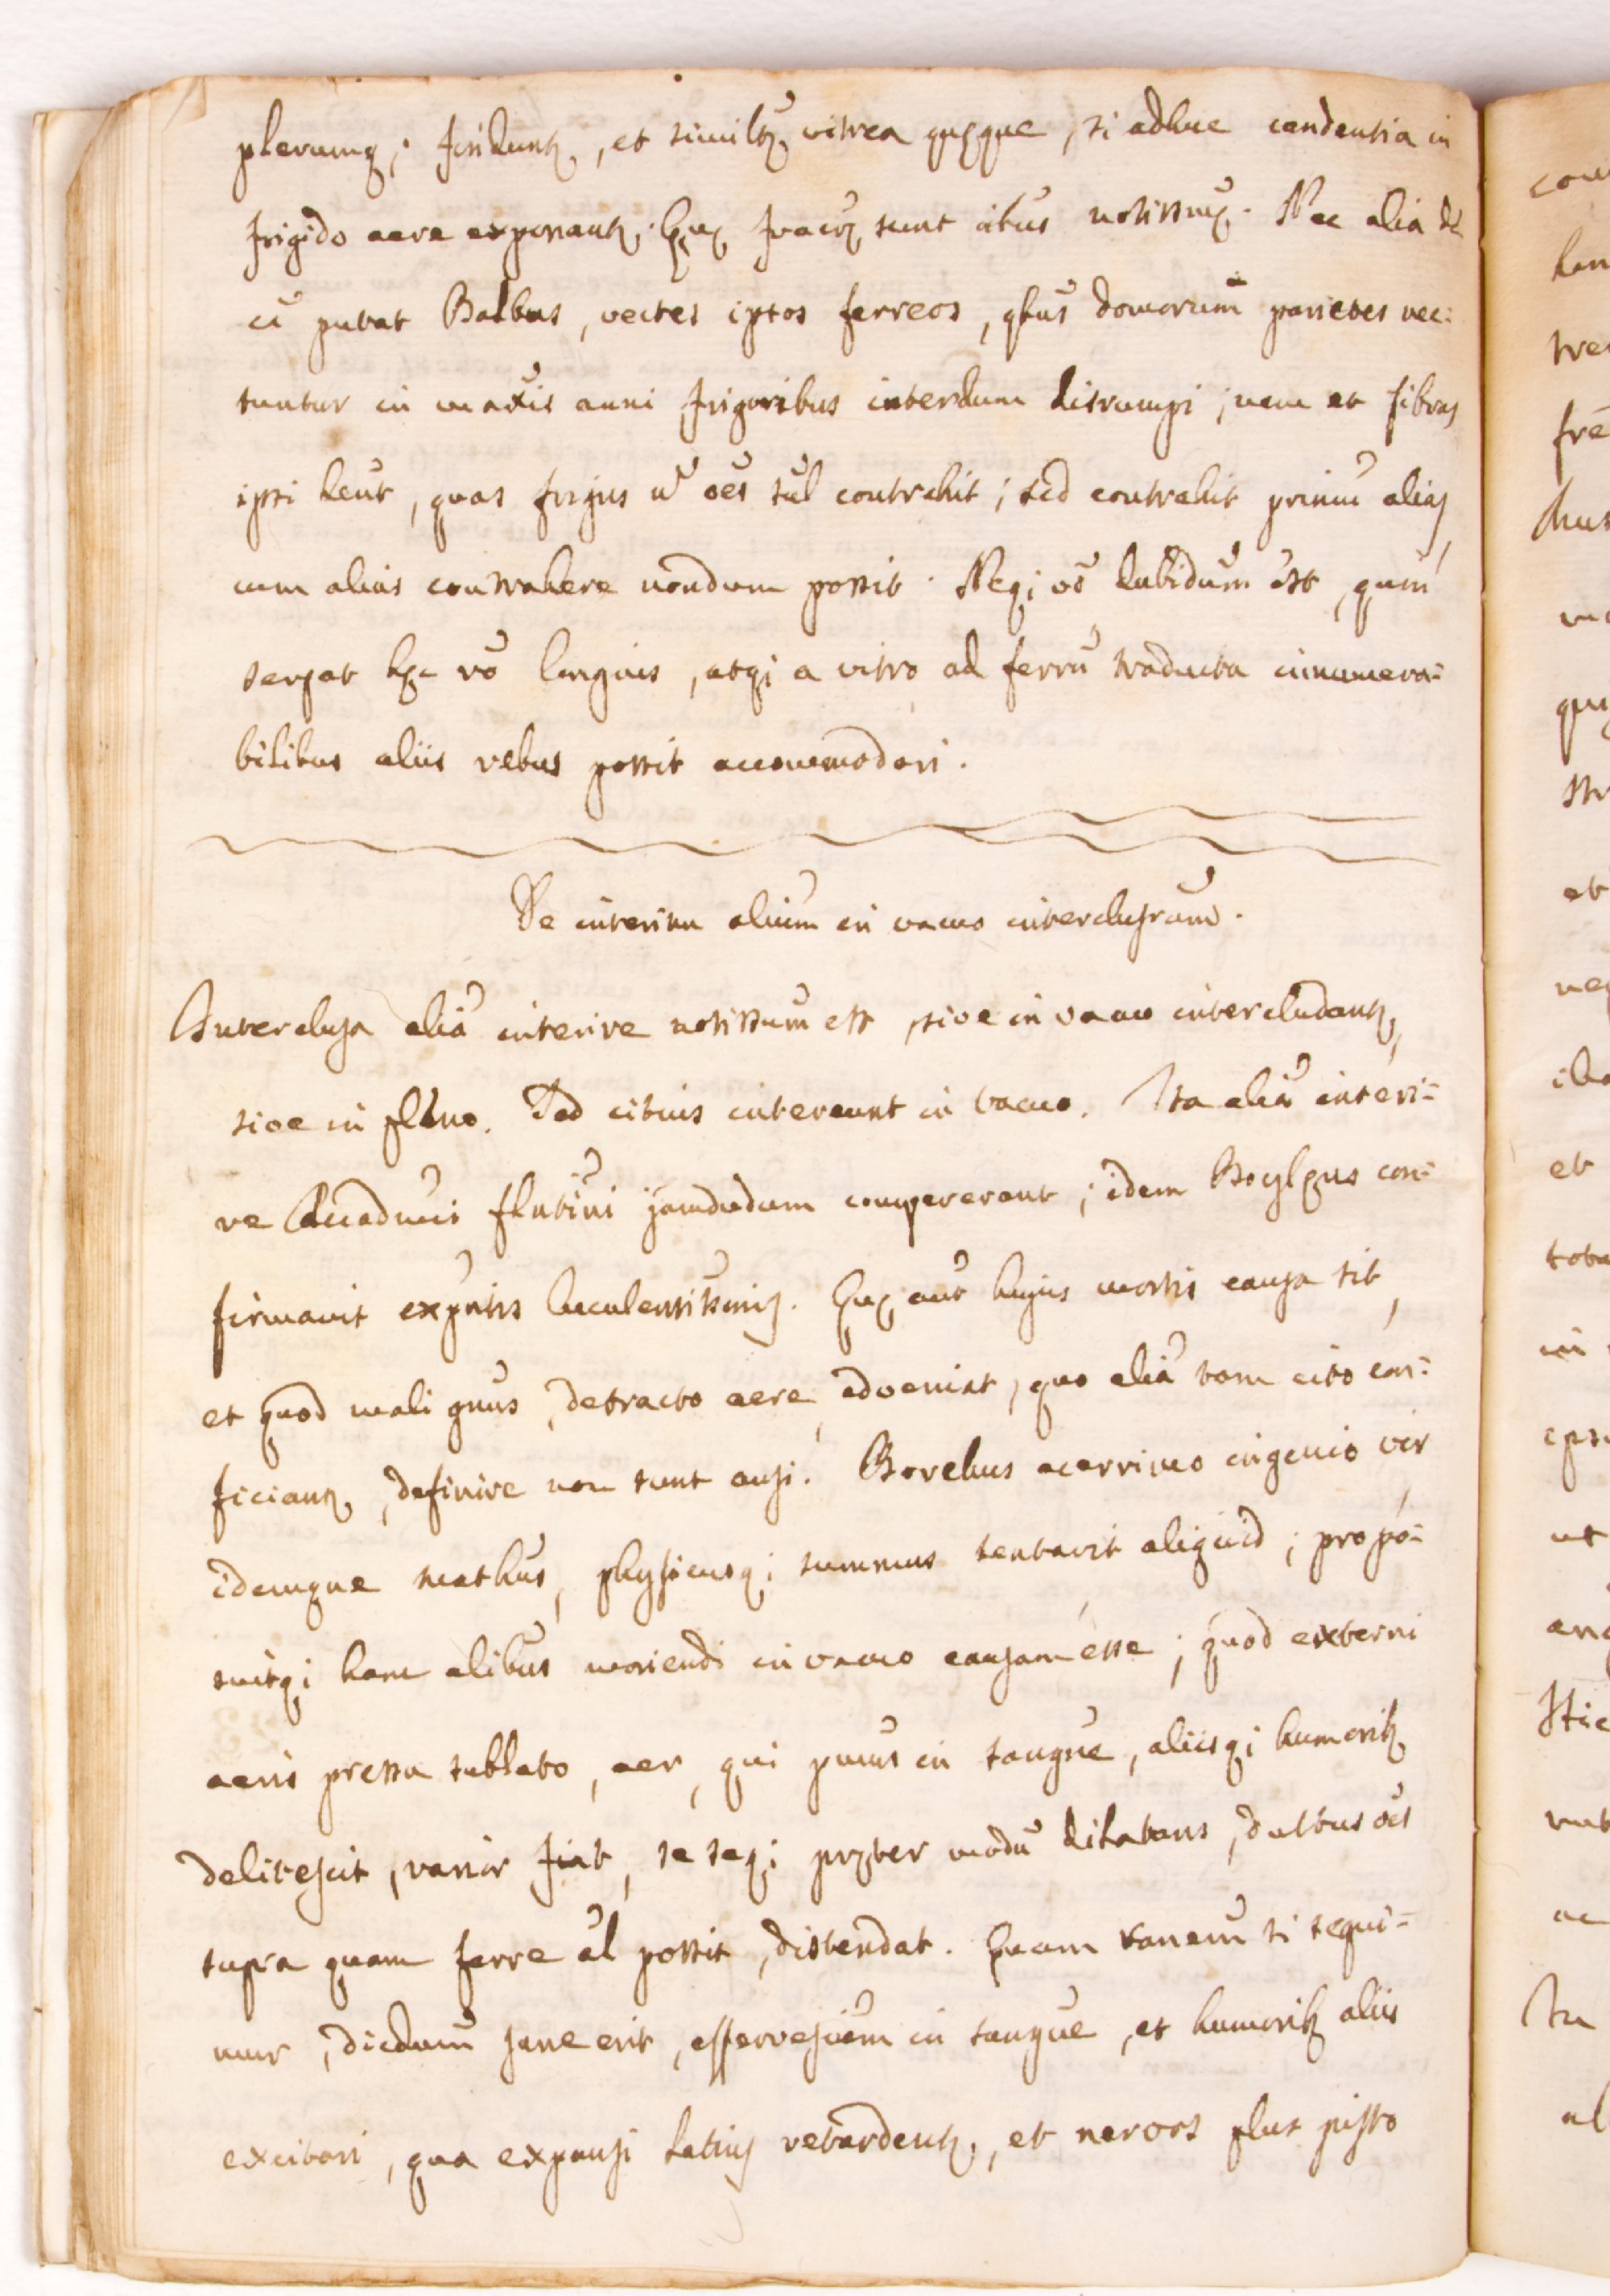 plerumq; finduntr, et similr vitrea quęque, si adhuc candentia in
frigido aere exponantr. Quę fracturę sunt oibus notissimę. Nec alia de
cã putat Balbus, vectes ipsos ferreos, qbus domorum parietes nec:
tuntur in maxis anni frigoribus interdum disrumpi; nam et fibras
ipsi hent, quas frigus ñ oes sul contrahit; sed contrahit primu alias,
cum alias contrahere nondum possit. Neq; vo dubidum est, quin
serpat hęc ro longius, atq; a vitro ad ferru traducta innumera:
bilibus aliis rebus possit accommodari.
De interitu alium in vacuo interclusrum.
Interclusa alia interire notissum est, sive in vacuo intercludantr,
sive in pleno. Sed citius intereunt in vacuo. Ita alia interi:
re Academici flntini jamdudum compererant; idem Boylęus con:
firmavit expntis luculentissimis. Quę aut hujus mortis causa sit,
et quod mali gnus, detracto aere, adveniat, quo alia tam cito con:
ficiantr, definire non sunt ausi. Borellus acerrimo ingenio vir,
idemque mathus, physicusq; summus tentavit aliquid; propo:
suitq; hanc alibus moriendi in vacuo causam esse; quod externi
aeris pressu sublato, aer, qui prius in sangue, aliisq; humorib
delitescit, rarior fiat, se seq; pręter modu dilatans, ductus oes
supra quam ferre al possit, distendat. Quam sanem si sequi:
mur, dicdum sane erit, effervesciem in sangue, et humorib aliis
excitari, qua expansi latius retardentr, et nervos plus justo